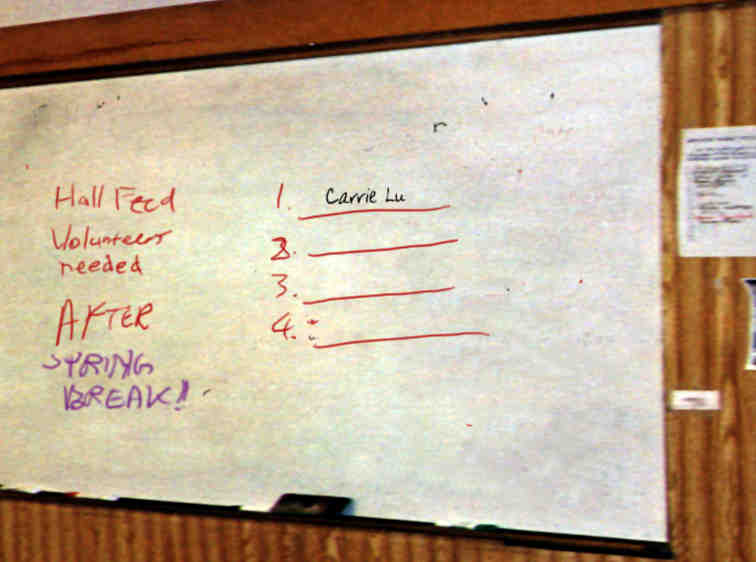 Hall Feed
Volunteers
needed
AFTER
SPRING
BREAK!!
1. Carrie Lu
2.
3.
4.
r